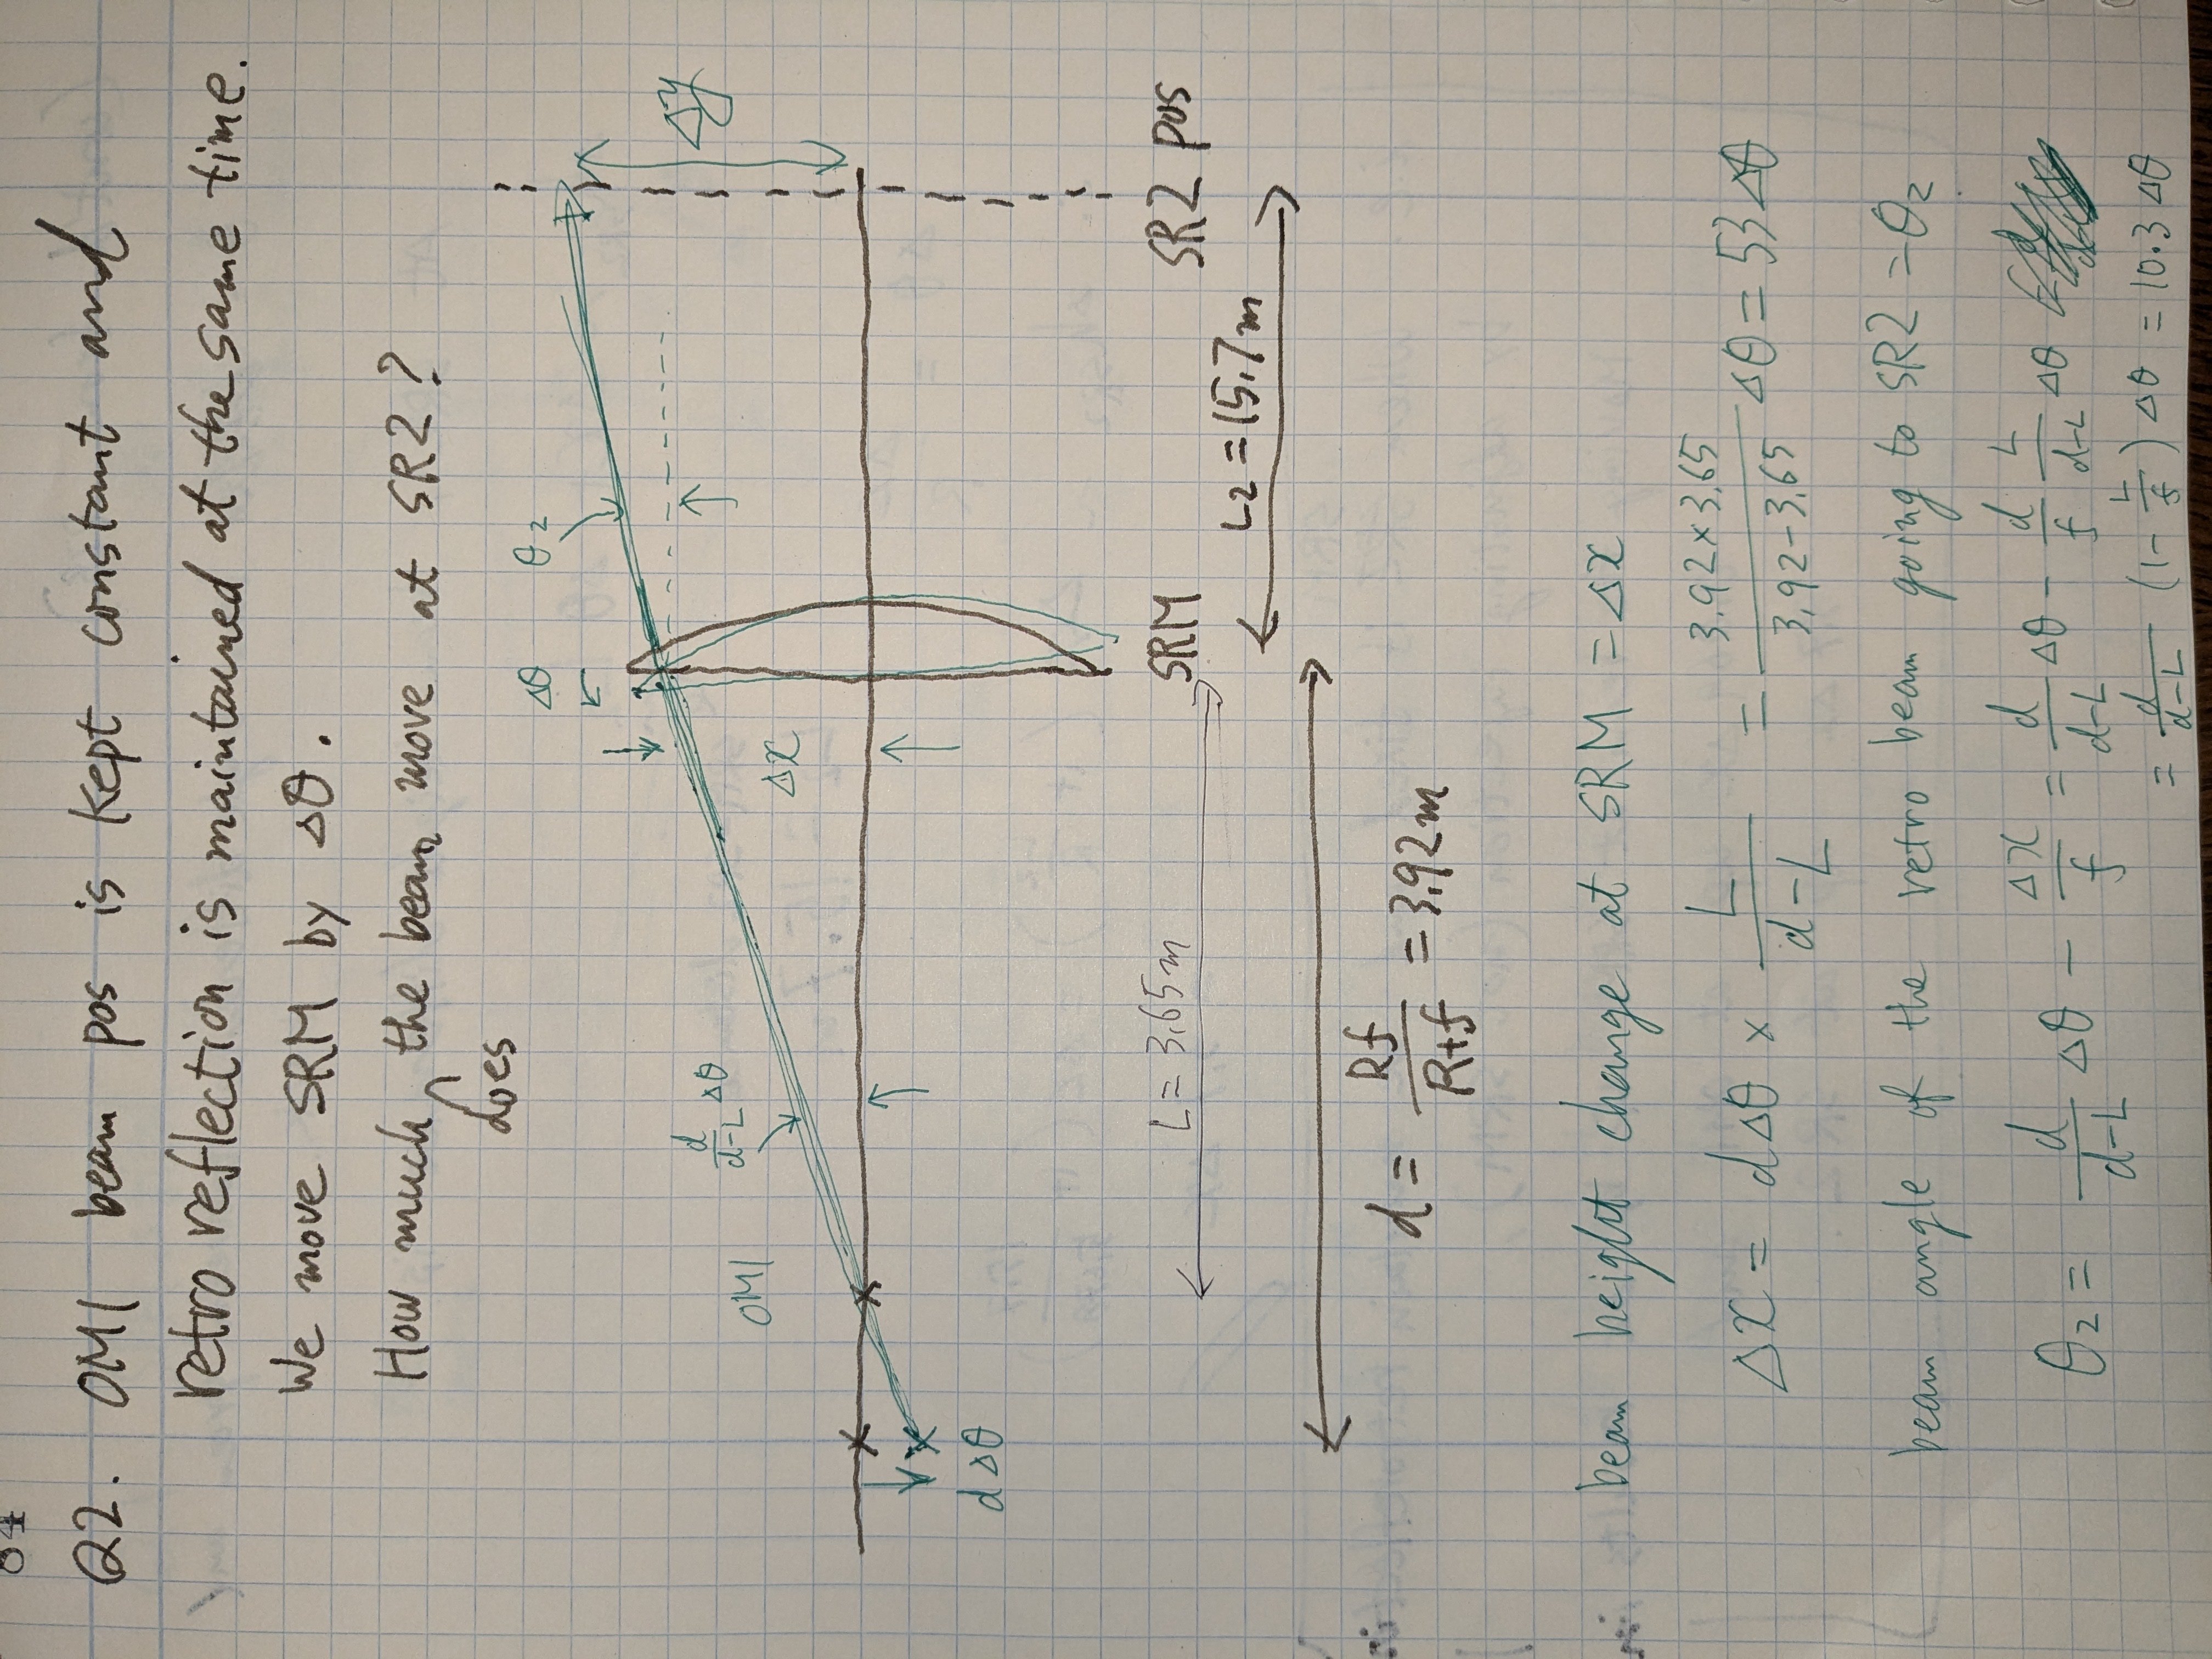 84
Q2. OM1 beam pos is kept constant and
retro reflection is maintained at the same time.
We move SRM by Δθ.
How much the beam move at SR2?
does
Δθ
θ₂
Δy
d/(d-L) Δθ
OM1
Δx
dΔθ
SRM
SR2 pos
L = 3.65m
L₂ = 15.7m
d = Rf/(R+f) = 3.92m
beam height change at SRM = Δx
Δx = dΔθ × L/(d-L) = (3.92×3.65)/(3.92-3.65) Δθ = 53Δθ
beam angle of the retro beam going to SR2 = θ₂
θ₂ = d/(d-L) Δθ - Δx/f = d/(d-L) Δθ - d/f L/(d-L) Δθ
= d/(d-L) (1 - L/f) Δθ = 10.3 Δθ